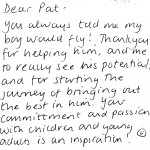 Dear Pat -
You always told me my
boy would fly! Thankyou
for helping him, and me
to really see his potential,
and for starting the
journey of bringing out
the best in him! Your
committment and passion
with children and young
adults is an inspiration!